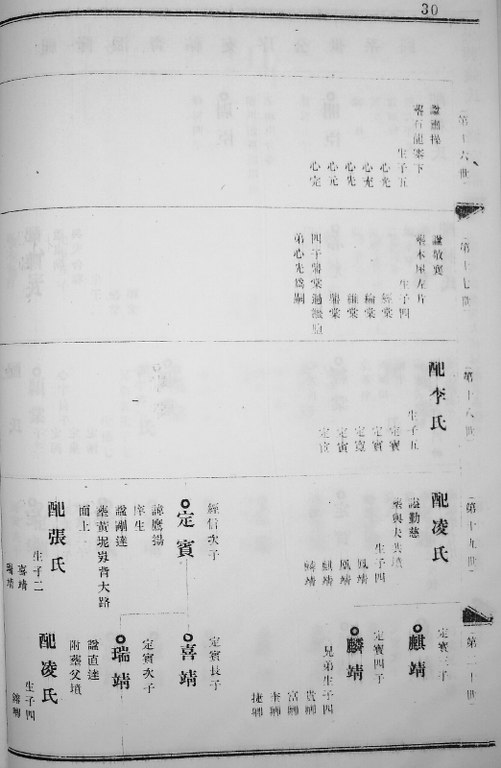 30
第十六世
葬石龍寨下
生子五
心光
心充
心先
心元
心定
第十七世
諡敬襄
葬木屋左片
生子四
綸棠
維棠
鼎棠
四子鼎棠過繼胞
弟心先為嗣
第十八世
配李氏
生子五
定寶
定賓
定寅
定宜
第十九世
配凌氏
諡勤慈
葬與夫共墳
生子四
鳳靖
麒靖
麟靖
經信次子
定賓
諱鷹揚
庠生
諡剛達
葬黃坭夠背大路
面上
配張氏
生子二
喜靖
瑞靖
第二十世
定寶三子
麒靖
定寶四子
麟靖
兄弟生子四
貴卿
富卿
李卿
捷卿
定賓長子
喜靖
定賓次子
瑞靖
諡直達
附葬父墳
配凌氏
生子四